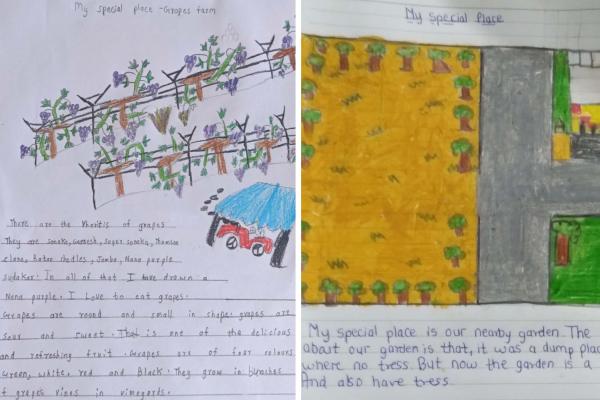 My special place - Grapes farm
There are the Vheritis of grapes
They are sonaka, Ganesh, super sonaka, Thomson
clone, Rotoo Seedles, Jambo, Nana purple
sudakar. In all of that I have drown a
Nana purple. I Love to eat grapes.
Greapes are round and small in shope. grapes are
sour and sweet. That is one of the delicious
and refreshing fruit. Grapes are of four colours
Green, white, red and Black. They grow in bunches
f grapes vines in vineyords.
My special place
My special place is our nearby garden. The
about our garden is that, it was a dump plac
where no tress. But now the garden is a
And also have tress